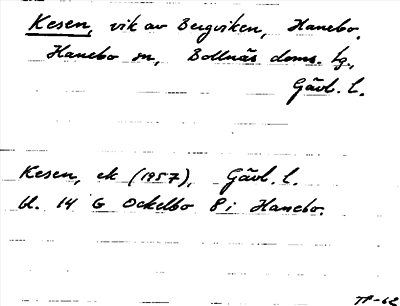 Kesen, vik av Bergviken, Hanebo.
Hanebo sn, Bollnäs doms. tg.,
Gävl. l.
Kesen, ek (1957), Gävl. l.
bl. 14 G Ockelbo 8 i Hanebo.
TP-62